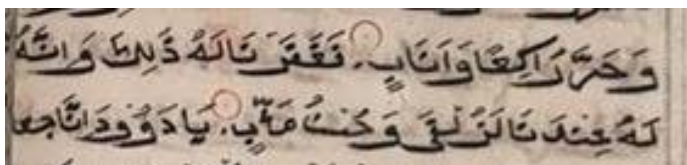 وَخَرَّ رَاكِعًا وَانَابَ فَغَفَرْنَا لَهُ ذَلِكَ وَاِنَّهُ
لَهُ عِنْدَنَا لَزُلْفَى وَحُسْنُ مَئَابٍ يَا دَاوُودُ اِنَّا جعلـ